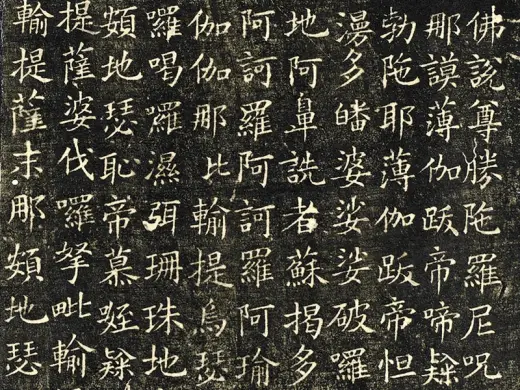 佛說尊勝陁羅尼呪
那謨薄伽跋帝啼隸
勃陁耶薄伽跋帝怛
漫多皤婆娑娑破囉
地阿鼻詵者蘇揭多
阿訶羅阿訶羅阿瑜
伽伽那比輸提烏瑟
囉喝囉濕弭珊珠地
頞地瑟恥帝慕姪隸
提薩婆伐囉拏毗輸
輸提薩末那頞地瑟